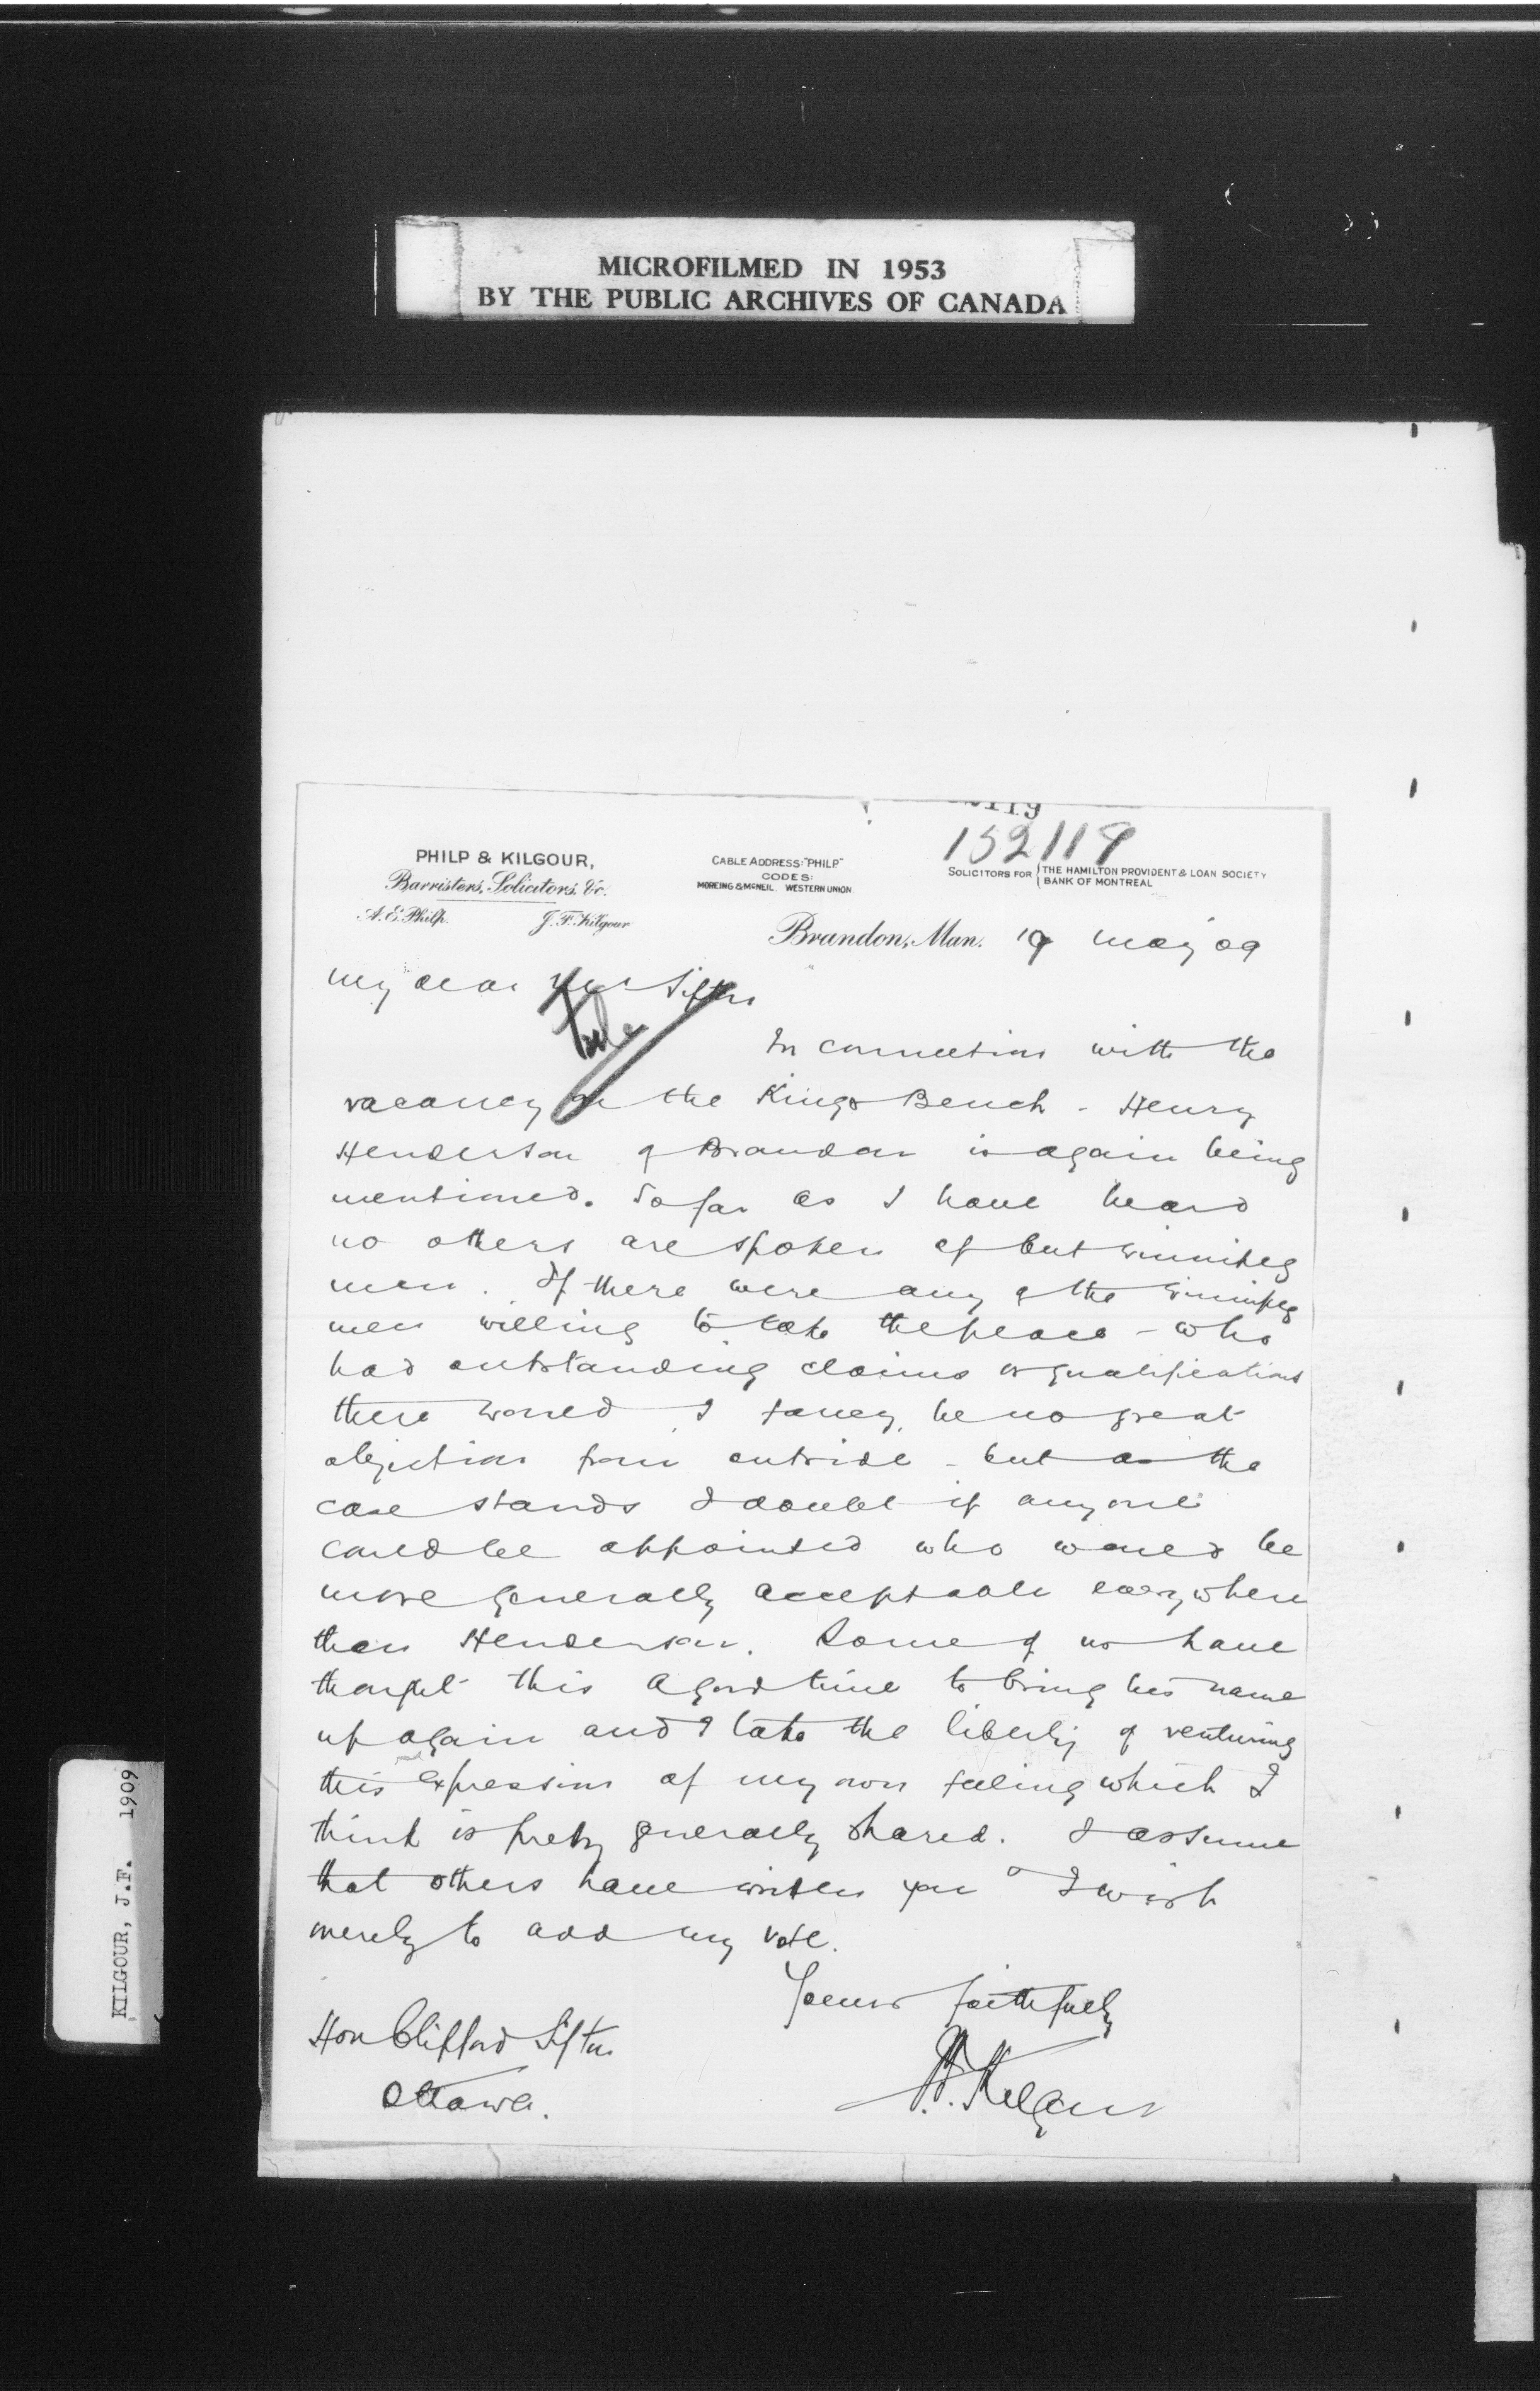 MICROFILMED IN 1953
BY THE PUBLIC ARCHIVES OF CANADA
119
152119
PHILP & KILGOUR,
Barristers, Solicitors, &c.
A. E. Philp. J. F. Kilgour
CABLE ADDRESS: "PHILP"
CODES:
MOREING & McNEIL. WESTERN UNION
SOLICITORS FOR THE HAMILTON PROVIDENT & LOAN SOCIETY
BANK OF MONTREAL
Brandon, Man. 19 May '09
My dear Mr Sifton
File
In connection with the
vacancy on the Kings Bench - Henry
Henderson of Brandon is again being
mentioned. So far as I have heard
no others are spoken of but Winnipeg
men. If there were any of the Winnipeg
men willing to take the place - who
had outstanding claims or qualifications
there would I fancy, be no great
objection from outside - but as the
case stands I doubt if anyone
could be appointed who would be
more generally acceptable everywhere
than Henderson. Some of us have
thought this a good time to bring his name
up again and I take the liberty of venturing
this expression of my own feeling which I
think is pretty generally shared. I assume
that others have written you I wish
merely to add my vote.
Yours faithfully
J.F. Kilgour
Hon Clifford Sifton
Ottawa.
KILGOUR, J.F. 1909